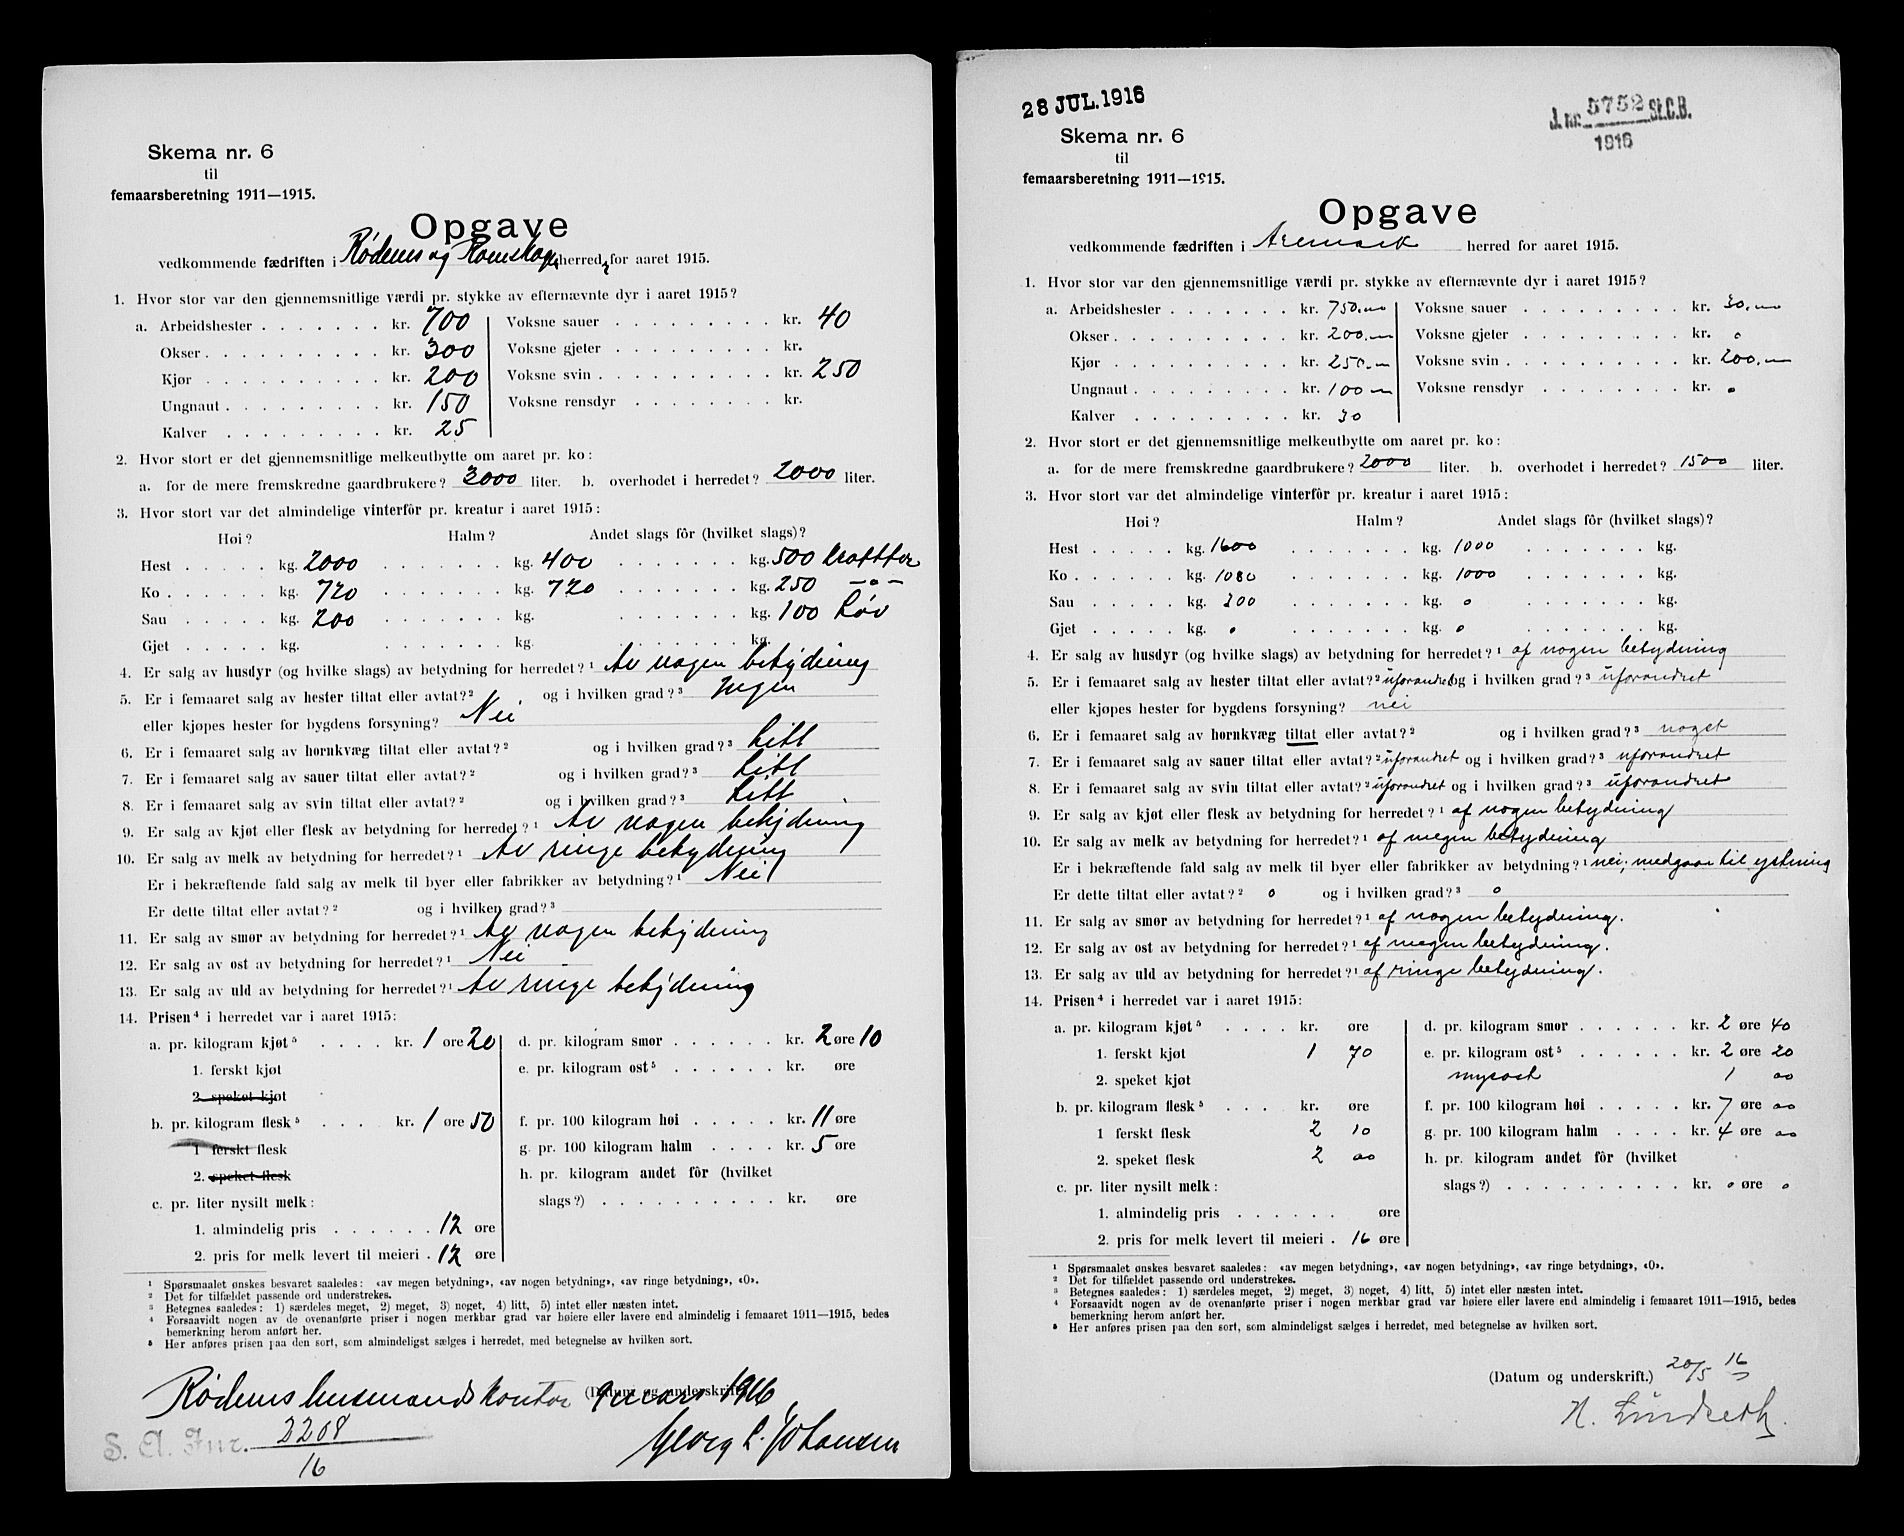 Skema nr. 6
til
femaarsberetning 1911—1915.
Opgave
vedkommende fædriften i Rødenes og Rømskog herred for aaret 1915.
1. Hvor stor var den gjennemsnitlige værdi pr. stykke av efternævnte dyr i aaret 1915?
a. Arbeidshester . . . . . . . kr. 700 Voksne sauer . . . . . . . . . kr. 40
Okser . . . . . . . . . . kr. 300 Voksne gjeter . . . . . . . . . kr.
Kjør . . . . . . . . . . kr. 200 Voksne svin . . . . . . . . . . kr. 250
Ungnaut . . . . . . . . . kr. 150 Voksne rensdyr . . . . . . . . kr.
Kalver . . . . . . . . . kr. 25
2. Hvor stort er det gjennemsnitlige melkeutbytte om aaret pr. ko:
a. for de mere fremskredne gaardbrukere? 3000 liter. b. overhodet i herredet? 2000 liter.
3. Hvor stort var det almindelige vinterfôr pr. kreatur i aaret 1915:
Høi? Halm? Andet slags fôr (hvilket slags)?
Hest . . . . . kg. 2000 . . . . . . . kg. 400 . . . . . . . kg. 500 kraftfor
Ko . . . . . . kg. 720 . . . . . . . kg. 720 . . . . . . . kg. 250 —"—
Sau . . . . . kg. 200 . . . . . . . kg. . . . . . . . kg. 100 Løv
Gjet . . . . . kg. . . . . . . . kg. . . . . . . . kg.
4. Er salg av husdyr (og hvilke slags) av betydning for herredet?¹ Av nogen betydning
5. Er i femaaret salg av hester tiltat eller avtat?² og i hvilken grad?³ Ingen
eller kjøpes hester for bygdens forsyning? Nei
6. Er i femaaret salg av hornkvæg tiltat eller avtat?² og i hvilken grad?³ Litt
7. Er i femaaret salg av sauer tiltat eller avtat?² og i hvilken grad?³ Litt
8. Er i femaaret salg av svin tiltat eller avtat?² og i hvilken grad?³ Litt
9. Er salg av kjøt eller flesk av betydning for herredet?¹ Av nogen betydning
10. Er salg av melk av betydning for herredet?¹ Av ringe betydning
Er i bekræftende fald salg av melk til byer eller fabrikker av betydning?¹ Nei
Er dette tiltat eller avtat?² og i hvilken grad?³
11. Er salg av smør av betydning for herredet?¹ Av nogen betydning
12. Er salg av ost av betydning for herredet?¹ Nei
13. Er salg av uld av betydning for herredet?¹ Av ringe betydning
14. Prisen⁴ i herredet var i aaret 1915:
a. pr. kilogram kjøt⁵ . . . . kr. 1 øre 20 d. pr. kilogram smør . . . . . . kr. 2 øre 10
1. ferskt kjøt e. pr. kilogram ost⁵ . . . . . . kr. øre
2. speket kjøt
b. pr. kilogram flesk⁵ . . . . kr. 1 øre 50 f. pr. 100 kilogram høi . . . . . kr. 11 øre
1 ferskt flesk g. pr. 100 kilogram halm . . . . kr. 5 øre
2. speket flesk h. pr. kilogram andet fôr (hvilket
c. pr. liter nysilt melk: slags?) . . . . . . . . . . kr. øre
1. almindelig pris . . . . . . 12 øre
2. pris for melk levert til meieri . 12 øre
¹ Spørsmaalet ønskes besvaret saaledes: «av megen betydning», «av nogen betydning», «av ringe betydning», «0».
² Det for tilfældet passende ord understrekes.
³ Betegnes saaledes: 1) særdeles meget, 2) meget, 3) noget, 4) litt, 5) intet eller næsten intet.
⁴ Forsaavidt nogen av de ovenanførte priser i nogen merkbar grad var høiere eller lavere end almindelig i femaaret 1911—1915, bedes
bemerkning herom anført her.
⁵ Her anføres prisen paa den sort, som almindeligst sælges i herredet, med betegnelse av hvilken sort.
(Datum og underskrift.)
Rødenes lensmandskontor 9 mars 1916
Georg L. Johansen
S. A. Jnr. 2208
16
28 JUL. 1916
J. nr. 5752 St.C.B.
1916
Skema nr. 6
til
femaarsberetning 1911—1915.
Opgave
vedkommende fædriften i Aremark herred for aaret 1915.
1. Hvor stor var den gjennemsnitlige værdi pr. stykke av efternævnte dyr i aaret 1915?
a. Arbeidshester . . . . . . . kr. 750.— Voksne sauer . . . . . . . . . kr. 30.—
Okser . . . . . . . . . . kr. 200.— Voksne gjeter . . . . . . . . . kr. 0
Kjør . . . . . . . . . . kr. 250.— Voksne svin . . . . . . . . . . kr. 200.—
Ungnaut . . . . . . . . . kr. 100— Voksne rensdyr . . . . . . . . kr. 0
Kalver . . . . . . . . . kr. 30
2. Hvor stort er det gjennemsnitlige melkeutbytte om aaret pr. ko:
a. for de mere fremskredne gaardbrukere? 2000 liter. b. overhodet i herredet? 1500 liter.
3. Hvor stort var det almindelige vinterfôr pr. kreatur i aaret 1915:
Høi? Halm? Andet slags fôr (hvilket slags)?
Hest . . . . . kg. 1600 . . . . . . . kg. 1000 . . . . . . . kg.
Ko . . . . . . kg. 1080 . . . . . . . kg. 1000 . . . . . . . kg.
Sau . . . . . kg. 200 . . . . . . . kg. 0 . . . . . . . kg.
Gjet . . . . . kg. 0 . . . . . . . kg. 0 . . . . . . . kg.
4. Er salg av husdyr (og hvilke slags) av betydning for herredet?¹ af nogen betydning
5. Er i femaaret salg av hester tiltat eller avtat?² uforandret og i hvilken grad?³ uforandret
eller kjøpes hester for bygdens forsyning? nei
6. Er i femaaret salg av hornkvæg tiltat eller avtat?² og i hvilken grad?³ noget
7. Er i femaaret salg av sauer tiltat eller avtat?² uforandret og i hvilken grad?³ uforandret
8. Er i femaaret salg av svin tiltat eller avtat?² uforandret og i hvilken grad?³ uforandret
9. Er salg av kjøt eller flesk av betydning for herredet?¹ af nogen betydning
10. Er salg av melk av betydning for herredet?¹ af megen betydning
Er i bekræftende fald salg av melk til byer eller fabrikker av betydning?¹ nei; medgaar til ystning
Er dette tiltat eller avtat?² 0 og i hvilken grad?³ 0
11. Er salg av smør av betydning for herredet?¹ af nogen betydning.
12. Er salg av ost av betydning for herredet?¹ af megen betydning.
13. Er salg av uld av betydning for herredet?¹ af ringe betydning.
14. Prisen⁴ i herredet var i aaret 1915:
a. pr. kilogram kjøt⁵ . . . . kr. øre d. pr. kilogram smør . . . . . . kr. 2 øre 40
1. ferskt kjøt 1 70 e. pr. kilogram ost⁵ . . . . . . kr. 2 øre 20
2. speket kjøt mysost 1 00
b. pr. kilogram flesk⁵ . . . kr. øre f. pr. 100 kilogram høi . . . . . kr. 7 øre 00
1 ferskt flesk 2 10 g. pr. 100 kilogram halm . . . . kr. 4 øre 00
2. speket flesk 2 00 h. pr. kilogram andet fôr (hvilket
c. pr. liter nysilt melk: slags?) . . . . . . . . . . . kr. 0 øre 0
1. almindelig pris . . . . . . øre
2. pris for melk levert til meieri . 16 øre
¹ Spørsmaalet ønskes besvaret saaledes: «av megen betydning», «av nogen betydning», «av ringe betydning», «0».
² Det for tilfældet passende ord understrekes.
³ Betegnes saaledes: 1) særdeles meget, 2) meget, 3) noget, 4) litt, 5) intet eller næsten intet.
⁴ Forsaavidt nogen av de ovenanførte priser i nogen merkbar grad var høiere eller lavere end almindelig i femaaret 1911—1915, bedes
bemerkning herom anført her.
⁵ Her anføres prisen paa den sort, som almindeligst sælges i herredet, med betegnelse av hvilken sort.
(Datum og underskrift.) 20/5 16